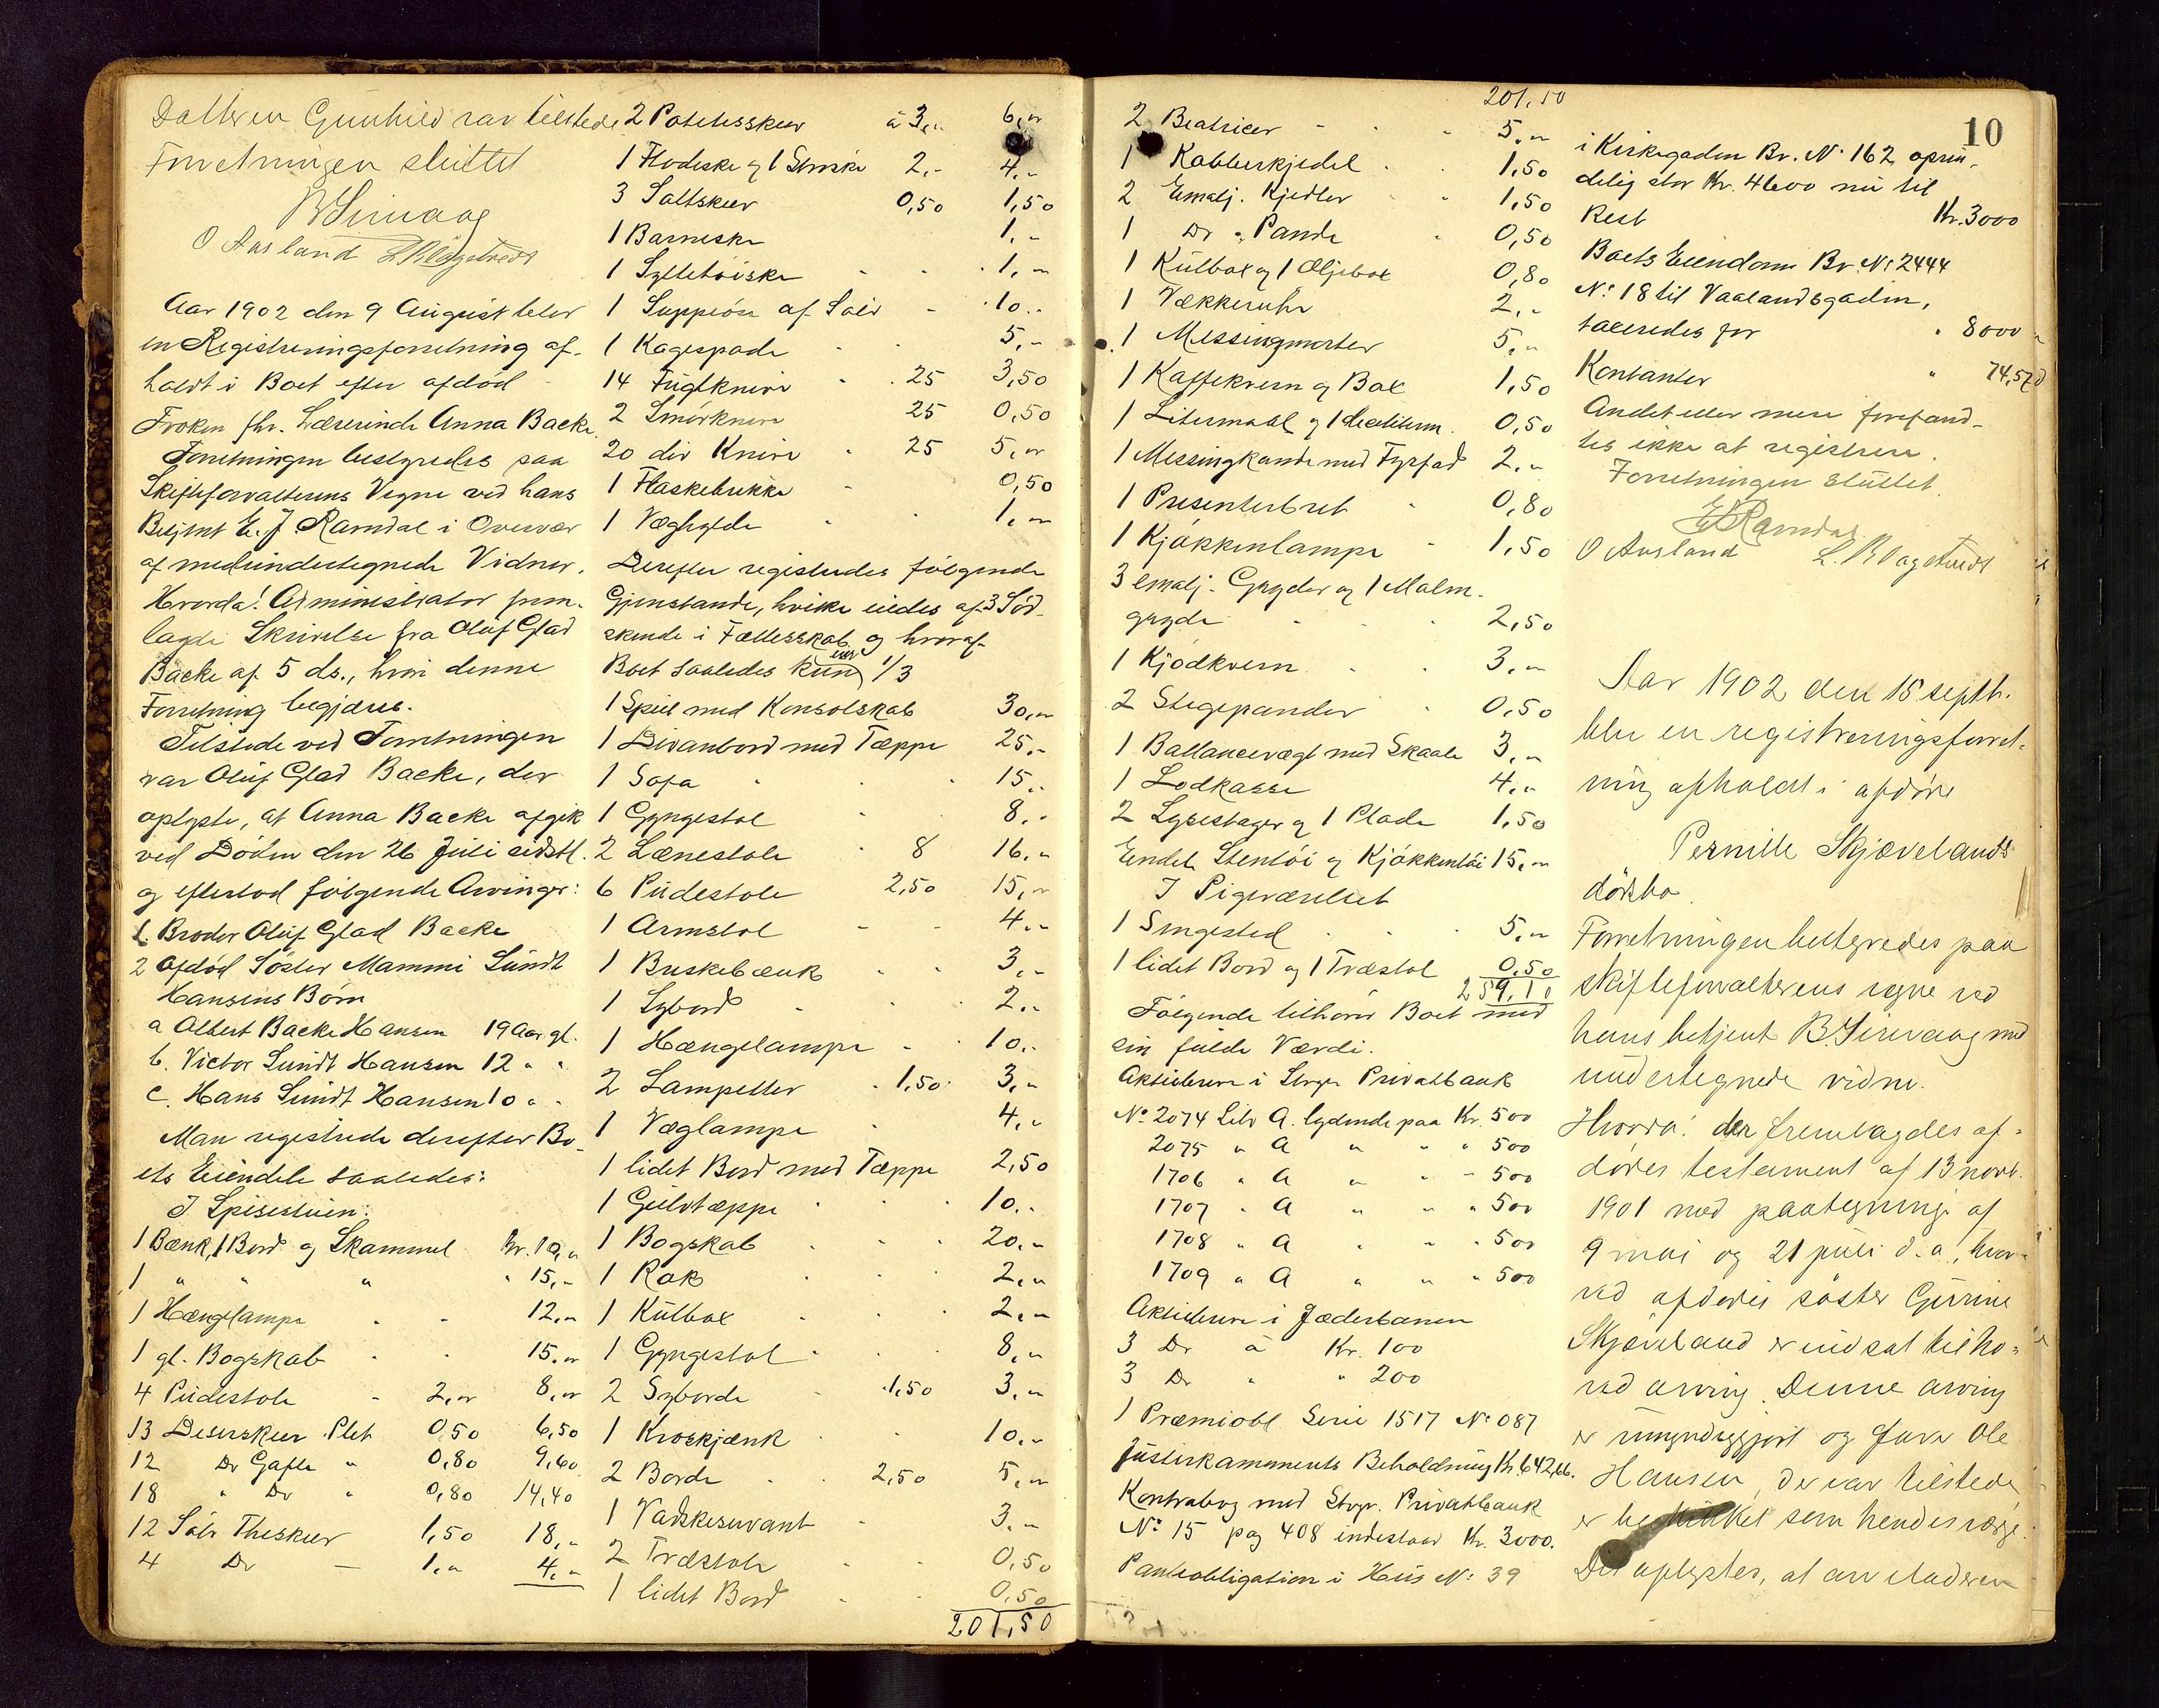 Datteren Gunhild var tilstede
Forretningen sluttet
B Sirevaag
O Aasland
Aar 1902 den 9 August blev
en Registreringsforretning af-
holdt i Boet efter afdød
Frøken fhv. Lærerinde Anna Backe.
Forretningen bestyredes paa
Skifteforvalterens Vegne ved hans
Betjent E. J Ramdal i Overvær
af medundertegnede Vidner.
Hvorda! Administrator frem-
lagde Skrivelse fra Oluf Glad
Backe af 5 ds., hvori denne
Forretning begjæres.
Tilstede ved Forretningen
var Oluf Glad Backe, der
oplyste, at Anna Backe afgik
ved Døden den 26 Juli sidstl.
og efterlod følgende Arvinger:
1. Broder Oluf Glad Backe
2 Afdød Søster Mammi Lundt
Hansens Børn
a Albert Backe Hansen 19 Aar gl.
b. Victor Lundt Hansen 12 " "
c. Hans Lundt Hansen 10 " "
Man registrerede derefter Bo-
ets Eiendele saaledes:
I Spisestuen:
1 Bænk, 1 Bord og Skammel Kr. 10,"
1 " " " " 15,-
1 Hængelampe 12,"
1 gl. Bogskab 15,"
4 Pudestole 2," 8,"
13 Desertskeer Plet 0,50 6,50
12 Do Gafle " 0,80 9,60
18 " Do " 0,80 14,40
12 Sølv Theskeer 1,50 18,"
4 Do — 1," 4,"
2 Potetesskeer à 3," 6,"
1 Flødeske og 1 Strøske 2,- 4,-
3 Saltskeer 0,50 1,50
1 Barneske 1,-
1 Syltetøiske 1,"
1 Suppeøse af Sølv 10,-
1 Kagespade 5,-
14 Frugtknive 25 3,50
2 Smørknive 25 0,50
20 div Knive 25 5,"
1 Flaskebrikke 0,50
1 Væghylde 1,"
Derefter registredes følgende
Gjenstande, hvilke eiedes af 3 Sød-
skende i Fællesskab og hvoraf
Boet saaledes kun eier 1/3
1 Speil med Konsolskab 30,"
1 Divanbord med Tæppe 25,-
1 Sofa 15,-
1 Gyngestol 8,-
2 Lænestole 8 16,"
6 Pudestole 2,50 15,"
1 Armstol 4,-
1 Buskebænk 3,-
1 Sybord 2,-
1 Hængelampe 10,-
2 Lampetter 1,50 3,"
1 Væglampe 4,"
1 lidet Bord med Tæppe 2,50
1 Gulvtæppe 10,-
1 Bogskab 20,"
1 Rak 2,"
1 Kulbox 2,"
1 Gyngestol 8,"
2 Syborde 1,50 3,"
1 Kroskjænk 10,-
2 Borde 2,50 5,"
1 Vadskeservant 3,"
2 Træstole 0,50
1 lidet Bord 0,50
201,50
10
201,50
2 Beatricer 5,"
1 Kobberkjedel 1,50
2 Emalj. Kjedler 1,50
1 Do " Pande 0,50
1 Kulbox og 1 Oljebox 0,80
1 Vækkeruhr 2,-
1 Messingmorter 5,"
1 Kaffekvern og Box 1,50
1 Litermaal og 1 deciliterm. 0,50
1 Messingkande med Fyrfad 2,"
1 Presenterbret 0,80
1 Kjøkkenlampe 1,50
3 emalj. Gryder og 1 Malm-
gryde 2,50
1 Kjødkvern 3,"
2 Stegepander 0,50
1 Ballancevægt med Skaale 3,"
1 Lodkasse 4,"
2 Lysestager og 1 Plade 1,50
Endel Stentøi og Kjøkkentøi 15,"
I Pigeværelset
1 Sengested 5,"
1 lidet Bord og 1 Træstol 0,50
259,10
Følgende tilhører Boet med
sin fulde Værdi.
Aktiebreve i Stvgr Privatbank
No. 2074 Litr A. lydende paa Kr. 500
2075 " A " " " 500
1706 " A " " " 500
1707 " A " " " 500
1708 " A " " " 500
1709 " A " " " 500
Aktiebreve i Jæderbanen
3 Do à Kr. 100
3 Do " " 200
1 Præmiobl Serie 1517 No 087
Justerkammerets Beholdning Kr. 642,66.
Kontrabog med Stvgr. Privatbank
No 15 pag 408 indestaar Kr. 3000.
Panteobligation i Hus No 39
i Kirkegaden Br. No 162 oprin-
delig stor Kr. 4600 nu til
Rest Kr. 3000
Boets Eiendom Br. No 2444
No 18 til Vaalandsgaden,
taxeredes for " 8000 "
Kontanter " 74,57
Andet eller mere forefand-
tes ikke at registrere.
Forretningen sluttet.
E J Ramdal
O Aasland L. B Vagstvedt
Aar 1902 den 15 septb.
blev en registreringsforret-
ning afholdt i afdøde
Pernille Skjævelands
dødsbo.
Forretningen bestyredes paa
skifteforvalterens vegne ved
hans betjent B. Sirevaag med
undertegnede vidner.
Hvorda! der fremlagdes af-
dødes testament af 13 novb.
1901 med paategning af
9 mai og 21 juli d. a., hvor-
ved afdødes søster Gurine
Skjæveland er indsat til ho-
ved arving. Denne arving
er umyndiggjort og Johan Ole
Hansen, der var tilstede
er beskikket som hendes værge.
Det oplystes, at arvladeren